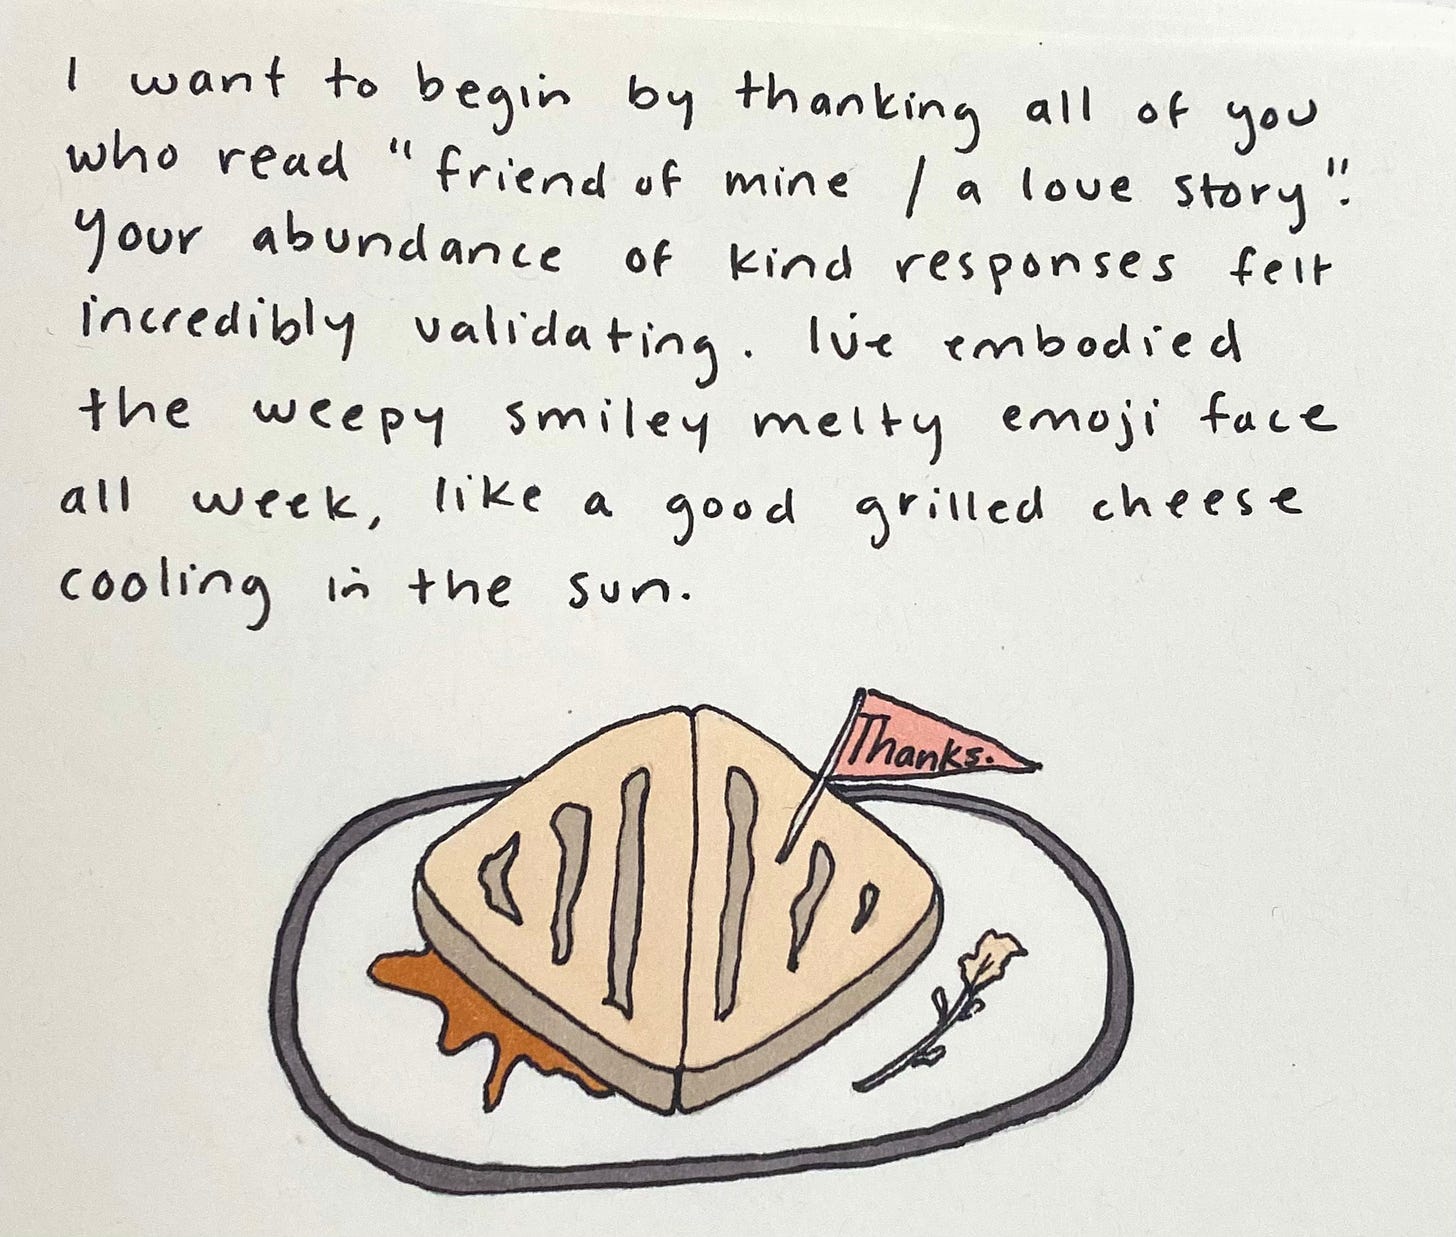 I want to begin by thanking all of you
who read "friend of mine / a love story".
Your abundance of kind responses felt
incredibly validating. I've embodied
the weepy smiley melty emoji face
all week, like a good grilled cheese
cooling in the sun.
Thanks.